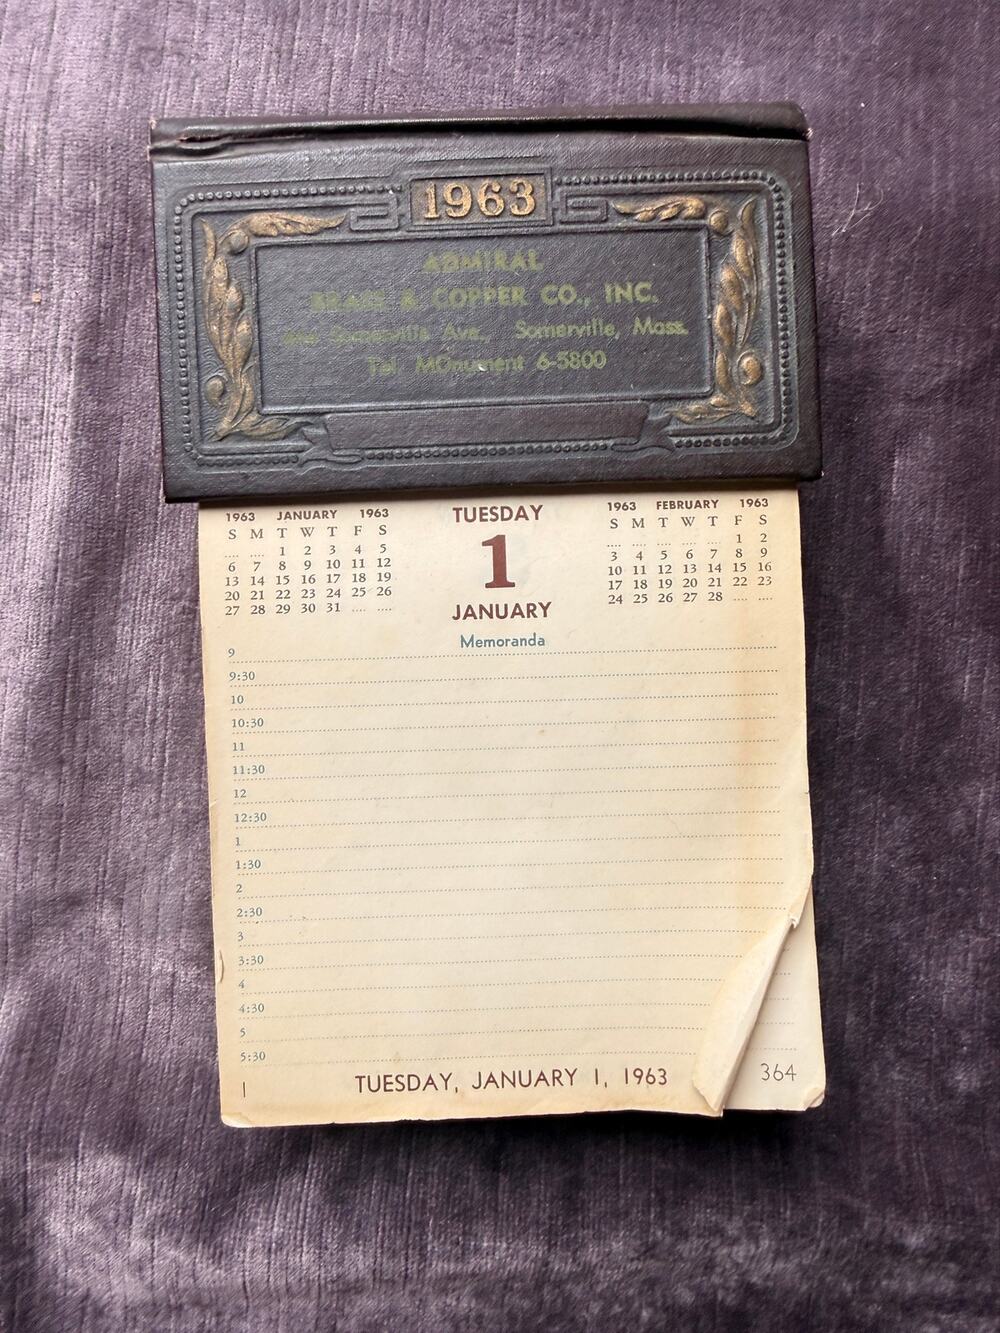 1963
ADMIRAL
BRASS & COPPER CO., INC.
Somerville Ave., Somerville, Mass.
Tel. MOnument 6-5800
1963 JANUARY 1963
S M T W T F S
.... .... 1 2 3 4 5
6 7 8 9 10 11 12
13 14 15 16 17 18 19
20 21 22 23 24 25 26
27 28 29 30 31 .... ....
TUESDAY
1
JANUARY
1963 FEBRUARY 1963
S M T W T F S
.... .... .... .... .... 1 2
3 4 5 6 7 8 9
10 11 12 13 14 15 16
17 18 19 20 21 22 23
24 25 26 27 28 .... ....
Memoranda
9
9:30
10
10:30
11
11:30
12
12:30
1
1:30
2
2:30
3
3:30
4
4:30
5
5:30
1 TUESDAY, JANUARY 1, 1963 364